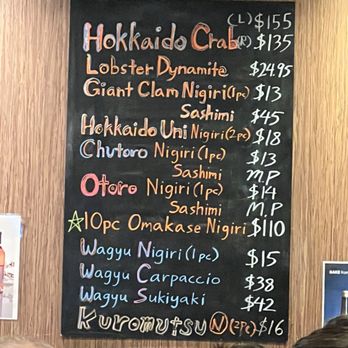 (L) $155
Hokkaido Crab (R) $135
Lobster Dynamite $24.95
Giant Clam Nigiri (1pc) $13
Sashimi $45
Hokkaido Uni Nigiri (2pc) $18
Chutoro Nigiri (1pc) $13
Sashimi M.P
Otoro Nigiri (1pc) $14
Sashimi M.P
☆10pc Omakase Nigiri $110
Wagyu Nigiri (1pc) $15
Wagyu Carpaccio $38
Wagyu Sukiyaki $42
Kuromutsu N (2pc) $16